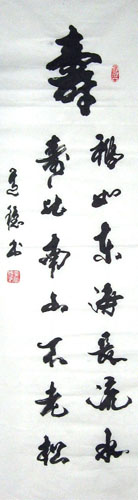 壽
福如東海長流水
壽比南山不老松